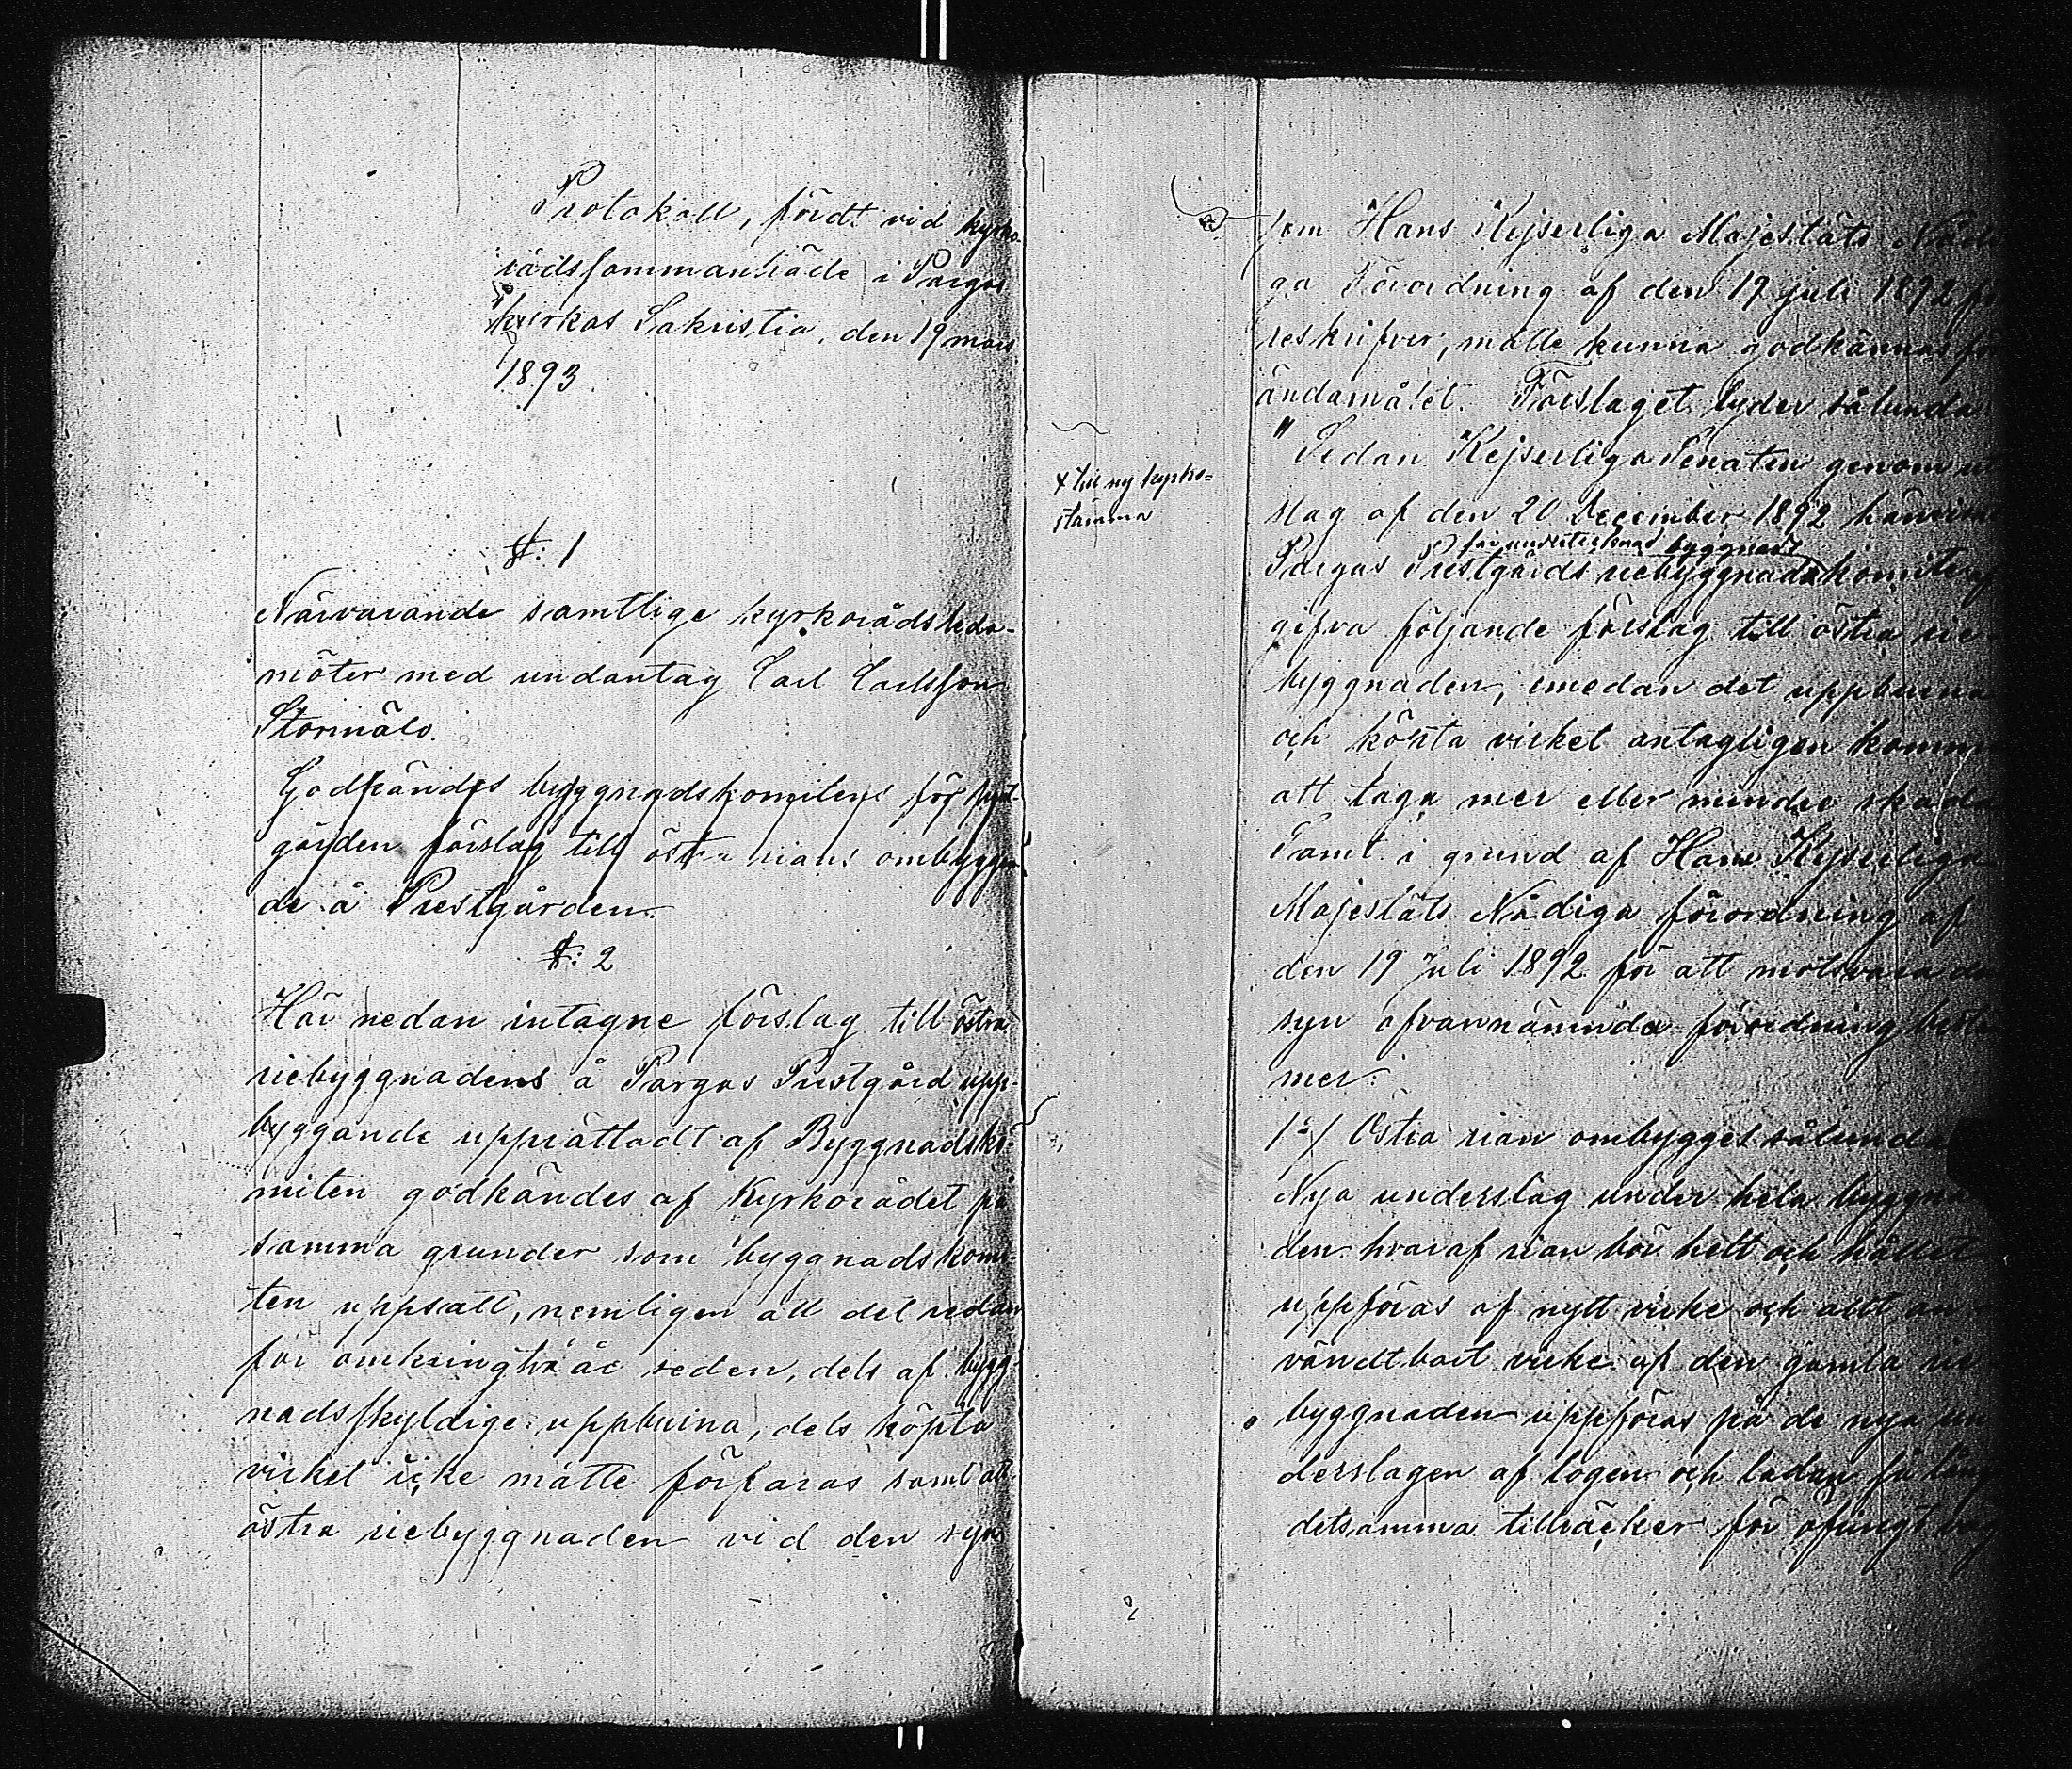 Protokoll, fördt vid kyrko-
rådssammanträde i Pargas
kyrkas Sakristia, den 19 mars
1893.
§: 1
Närvarande samtlige kyrkorådsleda-
möter med undantag Carl Carlsson
Stormälö.
Godkändes byggnadskomitens för prest-
gården förslag till östra rians ombyggan-
de å Prestgården.
§: 2
Här nedan intagne förslag till östra
riebyggnadens å Pargas Prestgård upp-
byggande upprättadt af Byggnadsko-
miten godkändes af Kyrkorådet på
samma grunder som byggnadskomi-
ten uppsatt, nemligen att det redan
för omkring två år sedan, dels af bygg-
nadsskyldige uppburna, dels köpta
virket icke måtte förfaras samt att
östra riebyggnaden vid den syn
som Hans Kejserliga Majestäts Nådi-
ga Förordning af den 19 juli 1892 fö-
reskrifver, måtte kunna godkännas för
ändamålet. Förslaget lyder sålunda
"Sedan Kejserliga Senaten genom ut-
x till ny kyrko-
stämma
slag af den 20 December 1892 hänvisat
får undertecknad byggnads
Pargas Prestgårds riebyggnadskomite
gifva följande förslag till östra rie-
byggnaden, emedan det uppburna
och köpta virket antagligen kommer
att taga mer eller mindre skada
Samt i grund af Hans Kejserliga
Majestäts Nådiga förordning af
den 19 Juli 1892 för att motsvara de
syn ofvannämnda förordning bestä-
mer:
1º/ Östra rian ombygges sålunda
Nya underslag under hela byggna-
den hvaraf rian bör helt och hållet
uppföras af nytt virke och allt an-
vändtbart virke af den gamla rie
byggnaden uppföras på de nya un-
derslagen af logen och ladan så lång
detsamma tillräcker för öfrigt